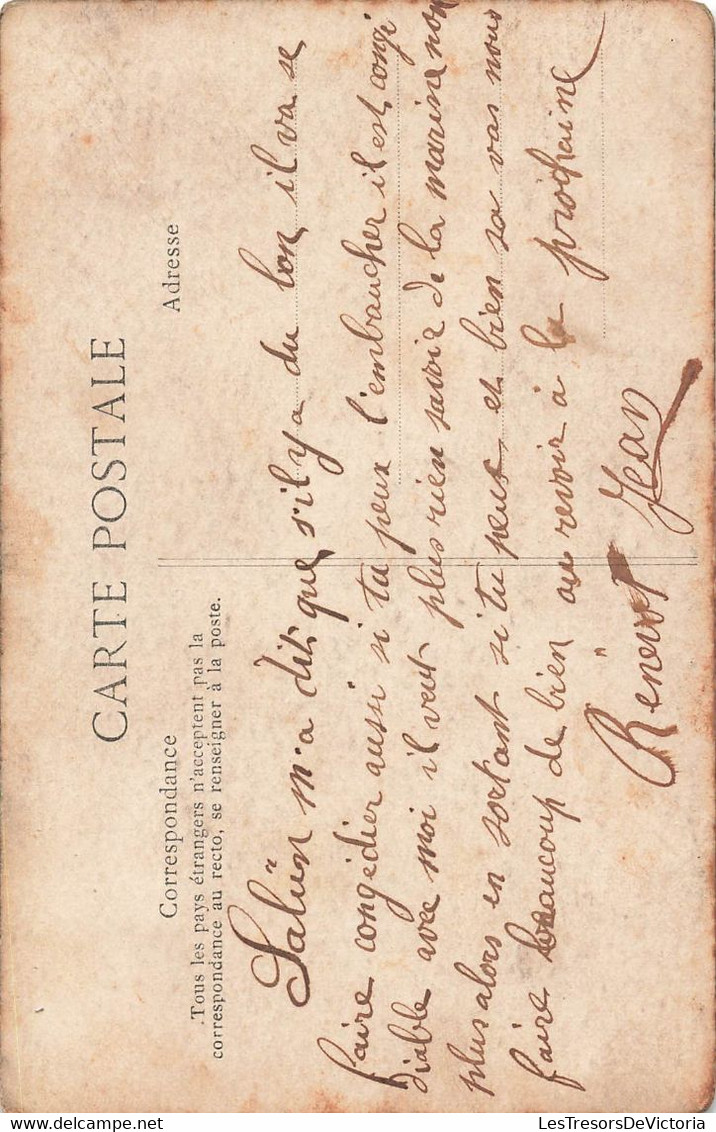 CARTE POSTALE
Correspondance
Tous les pays étrangers n'acceptent pas la
correspondance au recto, se renseigner à la poste.
Adresse
Salün m'a dit que s'il y a du bon il va se
faire congédier aussi si tu peux l'embaucher il est congé
diable avec moi il veut plus rien savoir de la marine non
plus alors en sortant si tu peux et bien sa vas nous
faire beaucoup de bien au revoir à la prochaine
Jean
LesTresorsDeVictoria